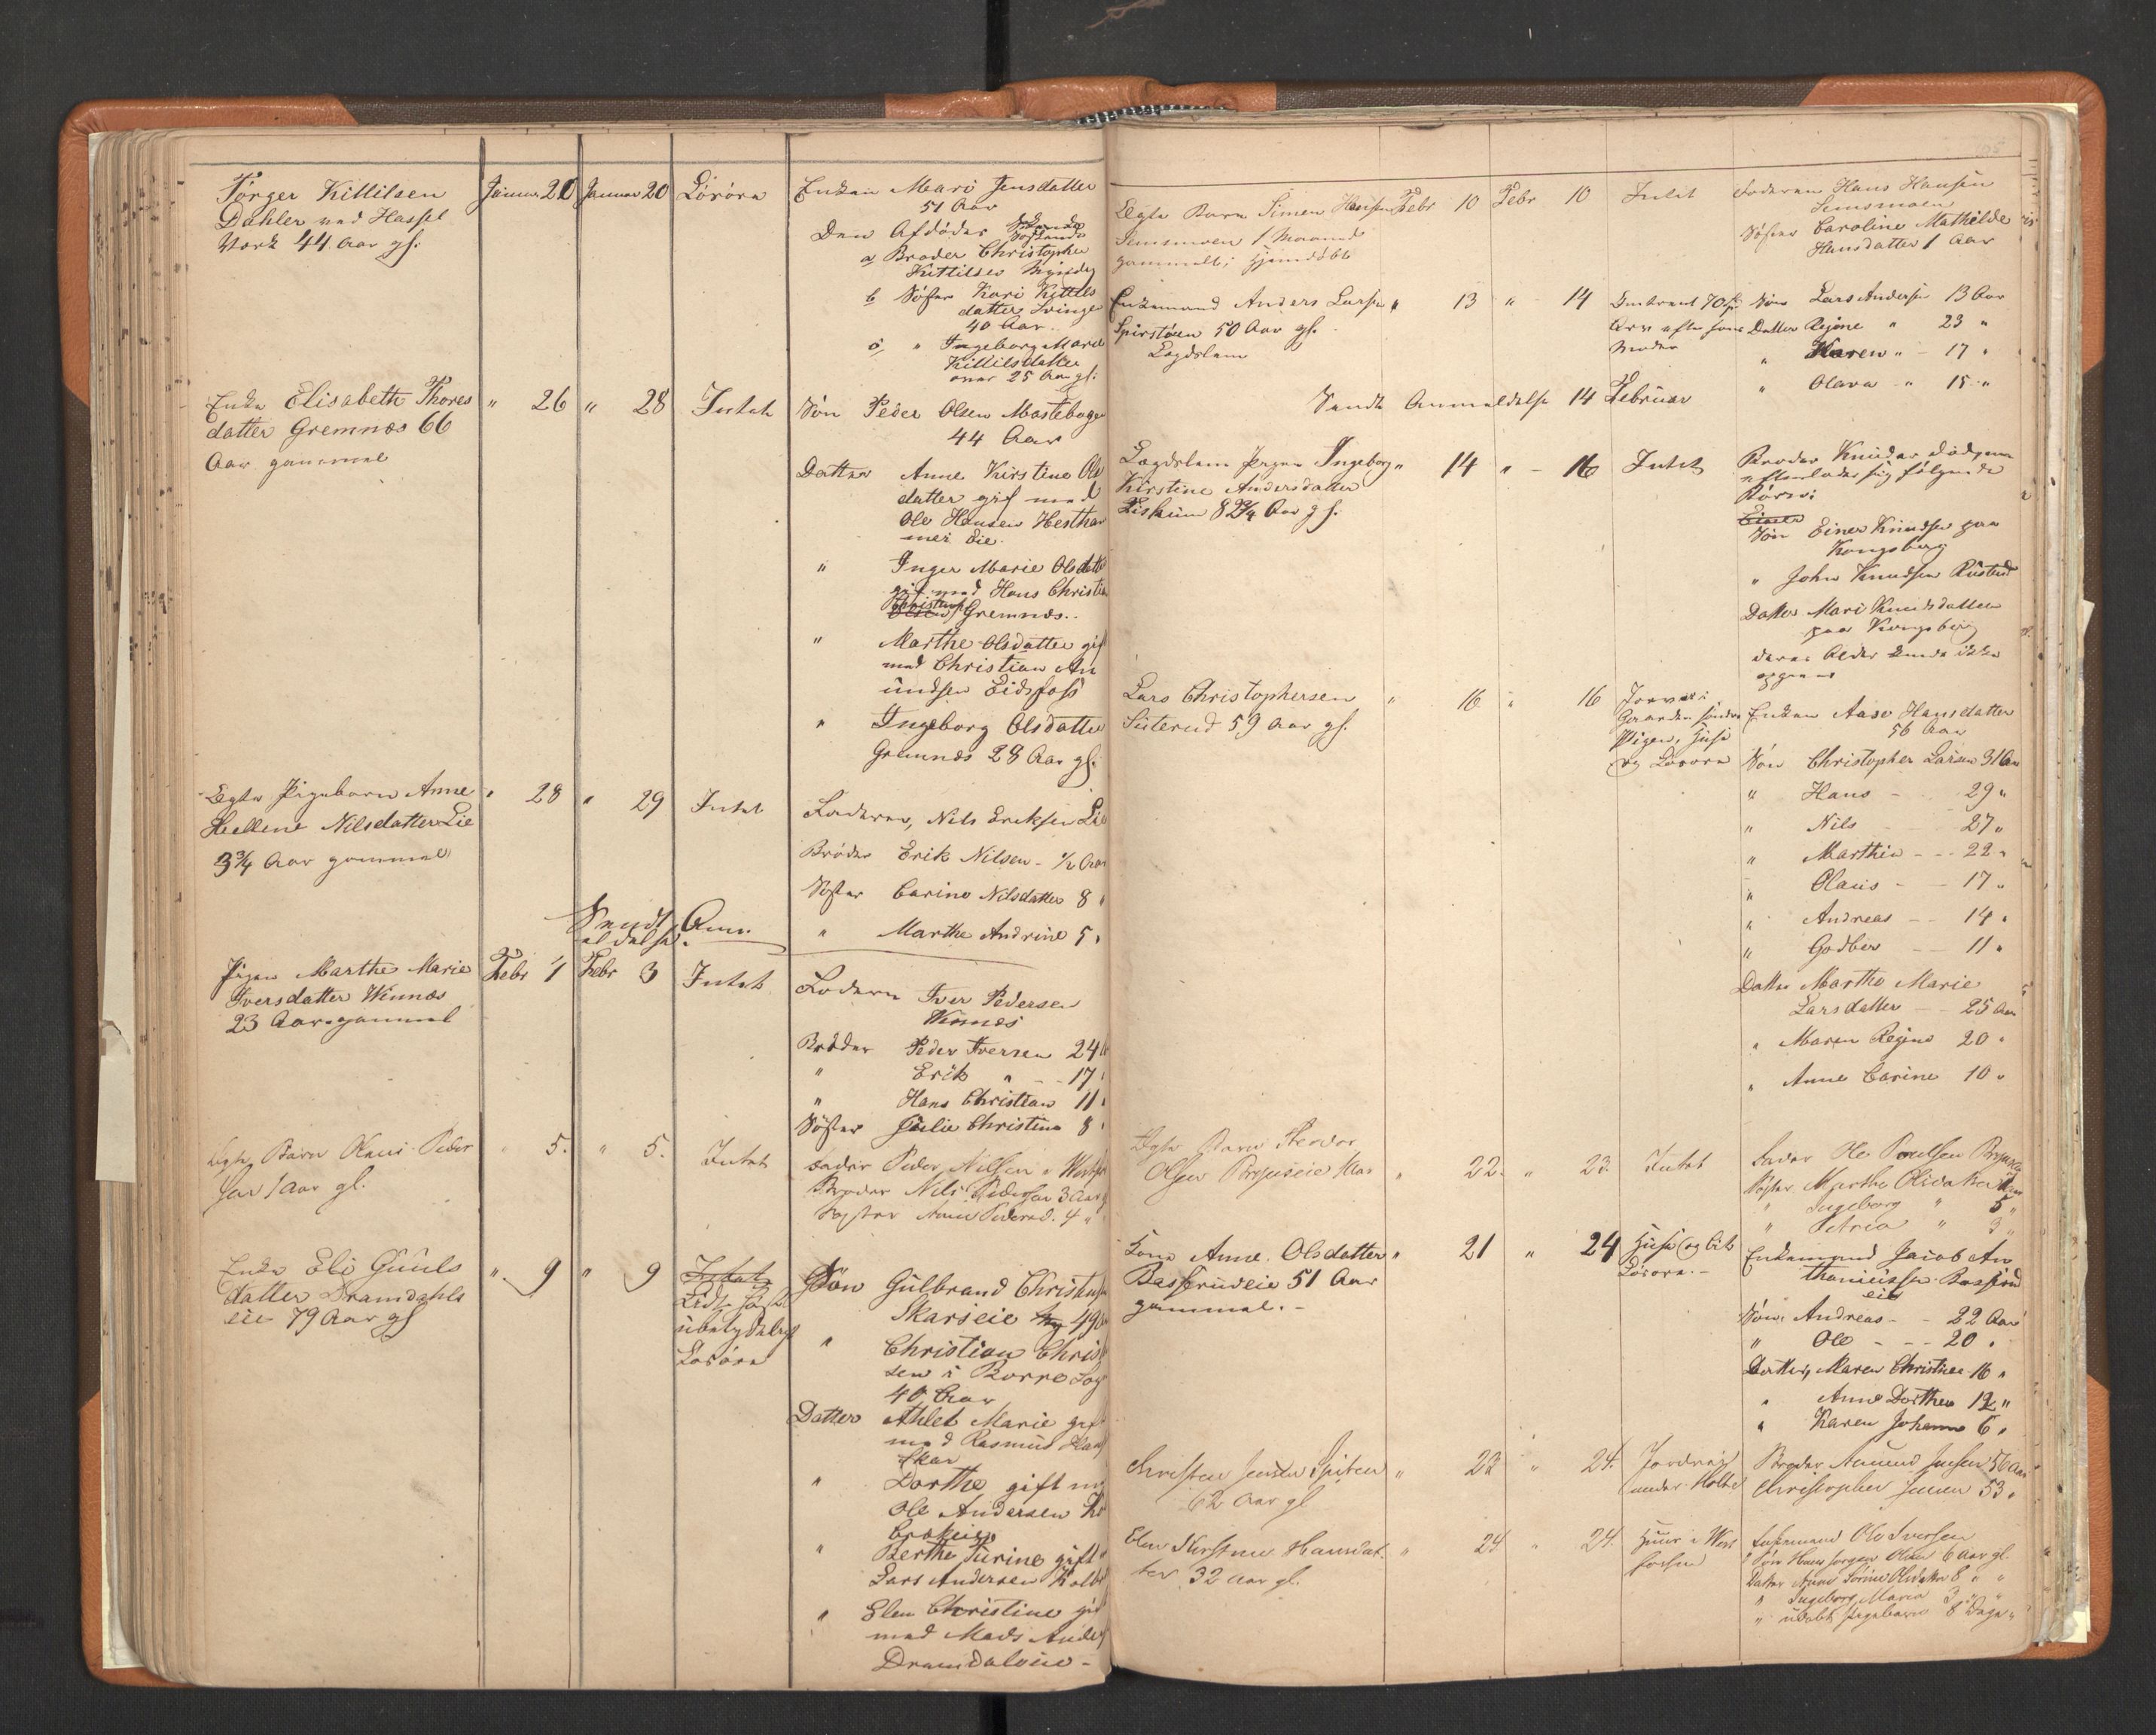 Jørger Killilsen
Dahler ved Hassel
Værk 44 Aar gl.
Januar 20 Januar 20 Løsøre
Enken Mari Jensdatter
51 Aar
Den Afdødes
a Broder Christopher
Kittilsen Myndig
b Søster Kari Kittils
datter Svinge
40 Aar.
c " Ingeborg Marie
Kittilsdatter
over 25 Aar gl.
Enke Elisabeth Thores
datter Gremnæs 66
Aar gammel
" 26 " 28 Intet
Søn Peder Olsen Mastebogen
44 Aar
Datter Anne Kirstine Ols
datter gift med
Ole Hansen Hestham
mer Eie.
" Inger Marie Olsdatter
gift med Hans Christian
Gremnæs.
" Marthe Olsdatter gift
med Christian An
undsen Eidsfoss
" Ingeborg Olsdatter
Gremnæs 28 Aar gl.
Ægte Pigebarn Anne
Hellene Nilsdatter Lie
3¾ Aar gammel
" 28 " 29 Intet
Faderen, Nils Eriksen Lie
Broder Erik Nilsen - ½ Aar
Søster Carine Nilsdatter 8 "
" Marthe Andrine 5 "
Sendt Anm
eldelse.
Pigen Marthe Marie
Iversdatter Winnæs
23 Aar gammel
Febr 1 Febr 3 Intet
Faderen Iver Pedersen
Winnæs
Broder Peder Iversen 24
" Erik " - 17 "
" Hans Christian 11 "
Søster Julie Christine 8 "
Ægte Barn Olaus Peder
sen 1 Aar gl.
" 5. " 5. Intet
Fader Peder Nilsen
Broder Nils Pedersen 3 Aar
Søster Anne Pedersd. 4 "
Enke Eli Guuls
datter Dramdahls
eie 79 Aar gl
" 9 " 9 Intet
Lidt
ubetydeligt
Løsøre
Søn Gulbrand Christensen
Skarseie 49
" Christian Chris
sen i Borre Sog
40 Aar
Datter Athlet Marie gift
med Rasmus Hans
Skar
" Dorthe gift m
Ole Andersen
" Berthe Turine gift
Lars Andersen Kolbr
" Elen Christine gift
med Mads Anders
Dramdaleie -
Ægte Barn Simen Hansen
Semsmoen 1 Maaned
gammelt; hjemdøbt
Febr 10 Febr 10 Intet
Faderen Hans Hansen
Semsmoen
Søster Caroline Mathilde
Hansdatter 1 Aar
Enkemand Anders Larsen
Spirstøen 50 Aar gl.
Lægdslem
" 13 " 14
Omtrent 70 Sp
Arv efter hans
Moder
Søn Lars Andersen 13 Aar
Datter Regine " 23 "
" Karen " - 17 "
" Olava - " 15 "
Sendt Anmeldelse 14 Februar
Lægdslem Pigen Ingeborg
Kirstine Andersdatter
Fiskum 82¾ Aar gl.
" 14 " 16 Intet
Broder Knud er død, som
efterlader sig følgende
Børn:
Søn Einer Knudsen paa
Kongsberg
" John Knudsen Rustad
Datter Mari Knudsdatter
paa Kongsberg
deres Alder kunde ikke
opgives
Lars Christophersen
Suterud 59 Aar gl.
" 16 " 16
Jorvei i
Gaarden søndre
Pigen, Huse
og Løsøre
Enken Aase Hansdatter
56 Aar
Søn Christopher Larsen 31 Aar
" Hans - 29 "
" Nils 27 "
" Marthin - - 22 "
" Olaus - - 17 "
" Andreas - - 14 "
" Godber - - 11 "
Datter Marthe Marie
Larsdatter - - 25 Aar
" Maren Regine 20 "
" Anne Carine 10 "
Ægte Barn Theodor
Olsen
" 22. " 23. Intet
Fader Ole Poulsen
Søster Marthe Olsdatter
" Ingeborg " 5 "
" Petrea " 3 "
Kone Anne Olsdatter
Basserudeie 51 Aar
gammel. -
" 21 " 24
Huse og lit
Løsøre. -
Enkemand Jacob An
thoniussen Basserud
eie
Søn, Andreas - - 22 Aar
" Ole - - - 20 "
Datter, Maren Christine 16 "
" Anne Dorthea 12 "
" Karen Johanne 6 "
Christen Jensen Spiten
62 Aar gl
" 23 " 24.
Jordvei
under Holte
Broder Amund Jensen 56 Aar
Christopher Jensen 53 "
Elen Kirstine Hansdat
ter 32 Aar gl.
" 24 " 24.
Huus i Vest
fossen
Enkemand Ole Iversen
Søn Hans Jørgen Olsen 6 Aar gl.
Datter Anne Sørine Olsdatter 8 " "
" Ingeborg Maria 3 " "
" udøbt Pigebarn 8 Dage "